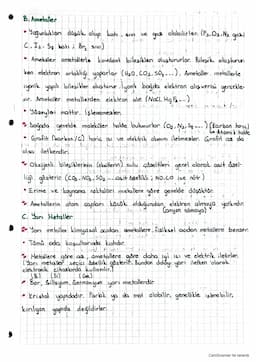 B. Ametaller
• Yoğunlukları düşük olup katı, sıvı ve gaz olabilirler. (F₂, O₂, N₂ gaz
C, I₂, S₈ katı; Br₂ sıvı)
• Ametaller ametallerle kovalent bileşikleri oluştururlar. Bileşik oluşturur-
ken elektron ortaklığı yaparlar (H₂O, CO₂, SO₂, ...). Ametaller metallerle
iyonik yapılı bileşikler oluşturur. İyonik bağda elektron alışverişi gerçekle-
şir. Ametaller metallerden elektron alır (NaCl, MgF₂...)
• Yüzeyleri mattır. İşlenemezler.
• Doğada genelde moleküler halde bulunurlar (O₂, N₂, S₈ ...) (Karbon hariç)
atomik halde
• Grafit (karbon/C) hariç ısı ve elektrik akımını iletmezler. Grafit ise de
ısıyı iletkendir.
• Oksijenli bileşiklerinin (oksitlerin) sulu çözeltileri genel olarak asit özel-
liği gösterir (CO₂, NO₂, SO₂ ... asit özellik; NO, CO ise nötr)
• Erime ve kaynama noktaları metallere göre genelde düşüktür.
• Ametallerin atom çapları küçük olduğundan elektron almaya yatkındır.
(anyon olmaya)
C. Yarı Metaller
• Yarı metaller kimyasal açıdan ametallere, fiziksel açıdan metallere benzer.
• Tümü oda koşullarında katıdır.
• Metallere göre az, ametallere göre daha iyi ısı ve elektrik iletirler.
(Yarı metaller seçici özellik gösterir. Bundan dolayı yarı iletken olarak
elektronik cihazlarda kullanılır.)
(B) (Si) (Ge)
• Bor, Silisyum, Germanyum yarı metallerdir.
• Kristal yapıdadır. Parlak ya da mat olabilir, genellikle işlenebilir,
kırılgan yapıda değildirler.
CamScanner ile tarandı